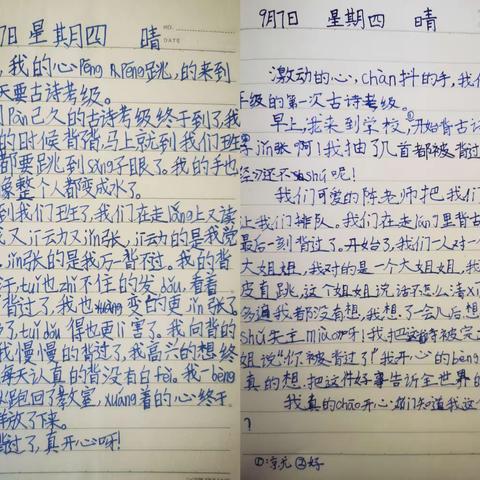 7日 星期四 晴
NO.
DATE
,我的心Pēng Pēng跳,的来到
天要古诗考级。
Pàn已久的古诗考级终于到了,我
的时候背背,马上就到我们班
都要跳到sǎng子眼了。我的手也
象整个人都变成水了。
到我们班了,我们在走láng上又读
又jī动又jǐn张,jī动的是我觉
jǐn张的是我万一背不过。我的背
于,tuǐ也zhǐ不住的发dǒu,看着
背过了,我也xuáng变的更jǐn张了。
了,tuǐ dǒu得也更lì害了。我向背的
我慢慢的背过了,我高兴的想终
每天认真的背没有白fèi。我一bèng
跑回了教室,xuáng着的心终于
放了下来。
背过了,真开心呀!
9月7日 星期四 晴
激动的心,chàn抖的手,我们
年级的第一次古诗考级。
早上,我来到学校,开始背古诗
jǐn张啊!我抽了几首都被背过
还不shú呢!
我们可爱的陈老师把我们
让我们排队。我们在走láng里背古
最后一刻背过了。开始了,我们一人对一个
大姐姐,我对的是一个大姐姐,我
皮直跳,这个姐姐说话不怎么清
多遍我都没有想,我想了一会儿后,想
shú先生miào呀!我把这
姐说“你被背过了”我开心的bèng
真的想把这件好事告诉全世界的
我真的chāo开心
?
①凉亢 ②好